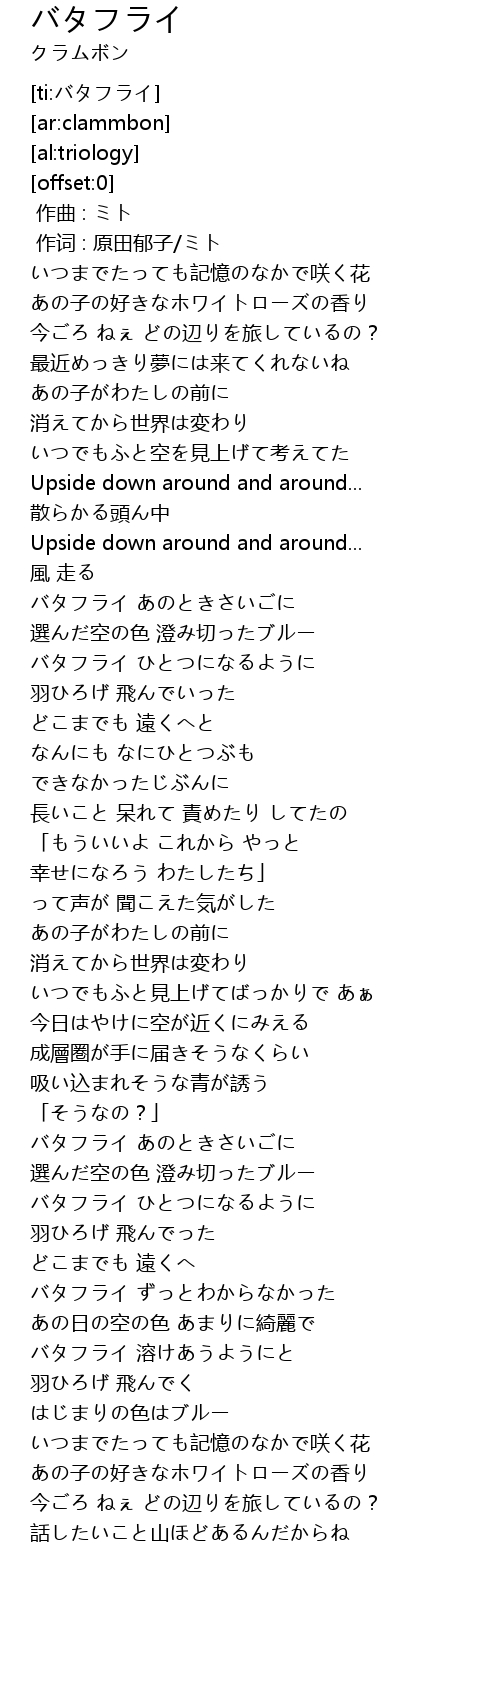 バタフライ
クラムボン
[ti:バタフライ]
[ar:clammbon]
[al:triology]
[offset:0]
作曲 : ミト
作词 : 原田郁子/ミト
いつまでたっても記憶のなかで咲く花
あの子の好きなホワイトローズの香り
今ごろ ねぇ どの辺りを旅しているの？
最近めっきり夢には来てくれないね
あの子がわたしの前に
消えてから世界は変わり
いつでもふと空を見上げて考えてた
Upside down around and around...
散らかる頭ん中
Upside down around and around...
風 走る
バタフライ あのときさいごに
選んだ空の色 澄み切ったブルー
バタフライ ひとつになるように
羽ひろげ 飛んでいった
どこまでも 遠くへと
なんにも なにひとつぶも
できなかったじぶんに
長いこと 呆れて 責めたり してたの
「もういいよ これから やっと
幸せになろう わたしたち」
って声が 聞こえた気がした
あの子がわたしの前に
消えてから世界は変わり
いつでもふと見上げてばっかりで あぁ
今日はやけに空が近くにみえる
成層圏が手に届きそうなくらい
吸い込まれそうな青が誘う
「そうなの？」
バタフライ あのときさいごに
選んだ空の色 澄み切ったブルー
バタフライ ひとつになるように
羽ひろげ 飛んでった
どこまでも 遠くへ
バタフライ ずっとわからなかった
あの日の空の色 あまりに綺麗で
バタフライ 溶けあうようにと
羽ひろげ 飛んでく
はじまりの色はブルー
いつまでたっても記憶のなかで咲く花
あの子の好きなホワイトローズの香り
今ごろ ねぇ どの辺りを旅しているの？
話したいこと山ほどあるんだからね